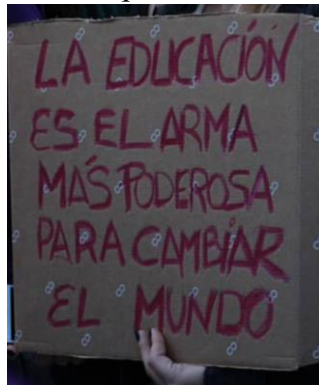 LA EDUCACIÓN
ES EL ARMA
MÁS PODEROSA
PARA CAMBIAR
EL MUNDO